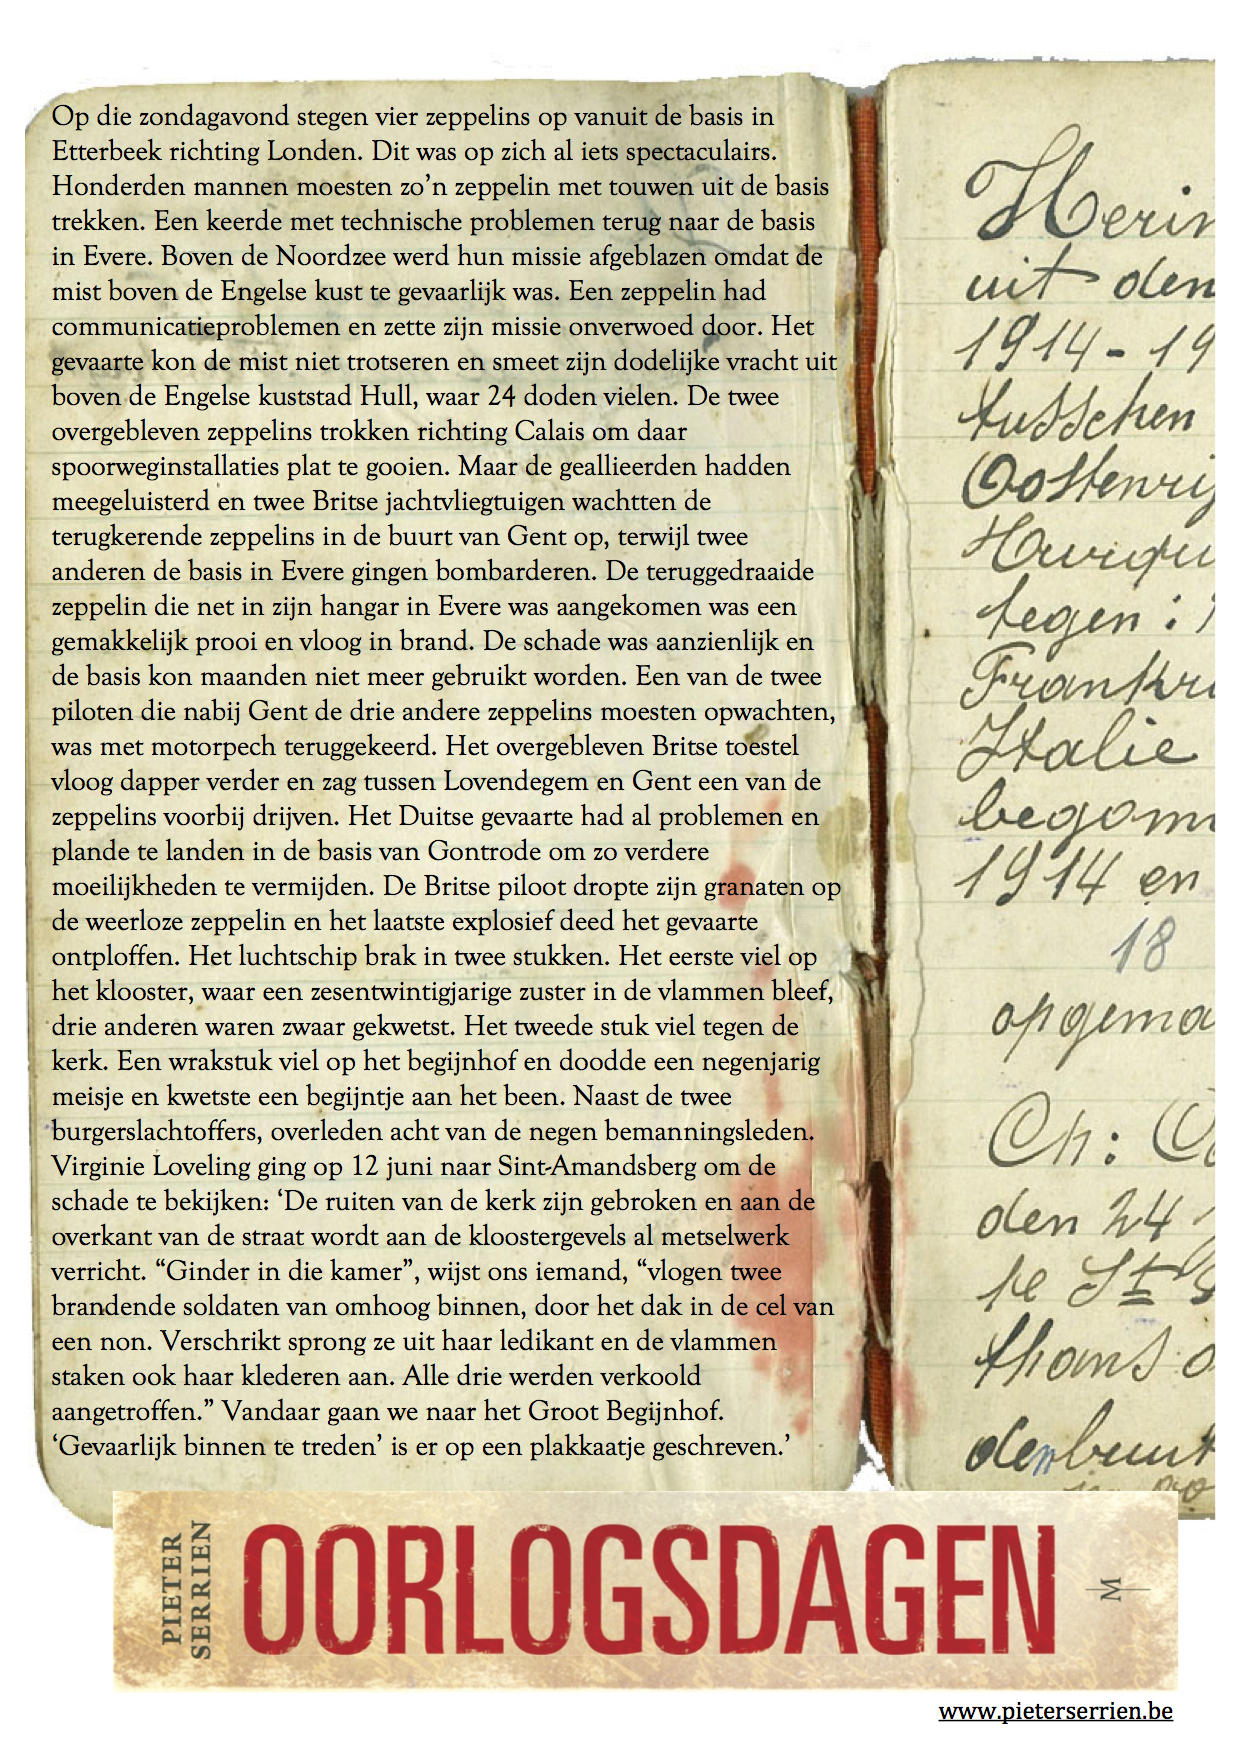 Op die zondagavond stegen vier zeppelins op vanuit de basis in
Etterbeek richting Londen. Dit was op zich al iets spectaculairs.
Honderden mannen moesten zo’n zeppelin met touwen uit de basis
trekken. Een keerde met technische problemen terug naar de basis
in Evere. Boven de Noordzee werd hun missie afgeblazen omdat de
mist boven de Engelse kust te gevaarlijk was. Een zeppelin had
communicatieproblemen en zette zijn missie onverwoed door. Het
gevaarte kon de mist niet trotseren en smeet zijn dodelijke vracht uit
boven de Engelse kuststad Hull, waar 24 doden vielen. De twee
overgebleven zeppelins trokken richting Calais om daar
spoorweginstallaties plat te gooien. Maar de geallieerden hadden
meegeluisterd en twee Britse jachtvliegtuigen wachtten de
terugkerende zeppelins in de buurt van Gent op, terwijl twee
anderen de basis in Evere gingen bombarderen. De teruggedraaide
zeppelin die net in zijn hangar in Evere was aangekomen was een
gemakkelijk prooi en vloog in brand. De schade was aanzienlijk en
de basis kon maanden niet meer gebruikt worden. Een van de twee
piloten die nabij Gent de drie andere zeppelins moesten opwachten,
was met motorpech teruggekeerd. Het overgebleven Britse toestel
vloog dapper verder en zag tussen Lovendegem en Gent een van de
zeppelins voorbij drijven. Het Duitse gevaarte had al problemen en
plande te landen in de basis van Gontrode om zo verdere
moeilijkheden te vermijden. De Britse piloot dropte zijn granaten op
de weerloze zeppelin en het laatste explosief deed het gevaarte
ontploffen. Het luchtschip brak in twee stukken. Het eerste viel op
het klooster, waar een zesentwintigjarige zuster in de vlammen bleef,
drie anderen waren zwaar gekwetst. Het tweede stuk viel tegen de
kerk. Een wrakstuk viel op het begijnhof en doodde een negenjarig
meisje en kwetste een begijntje aan het been. Naast de twee
burgerslachtoffers, overleden acht van de negen bemanningsleden.
Virginie Loveling ging op 12 juni naar Sint-Amandsberg om de
schade te bekijken: ‘De ruiten van de kerk zijn gebroken en aan de
overkant van de straat wordt aan de kloostergevels al metselwerk
verricht. “Ginder in die kamer”, wijst ons iemand, “vlogen twee
brandende soldaten van omhoog binnen, door het dak in de cel van
een non. Verschrikt sprong ze uit haar ledikant en de vlammen
staken ook haar klederen aan. Alle drie werden verkoold
aangetroffen.” Vandaar gaan we naar het Groot Begijnhof.
‘Gevaarlijk binnen te treden’ is er op een plakkaatje geschreven.’
Herin
uit den
1914-19
tusschen
Oostenrij
tegen :
Frankr
Italie
1914 en
18
opgema
Ch:
den 24
thans
PIETER
SERRIEN
OORLOGSDAGEN
M
www.pieterserrien.be